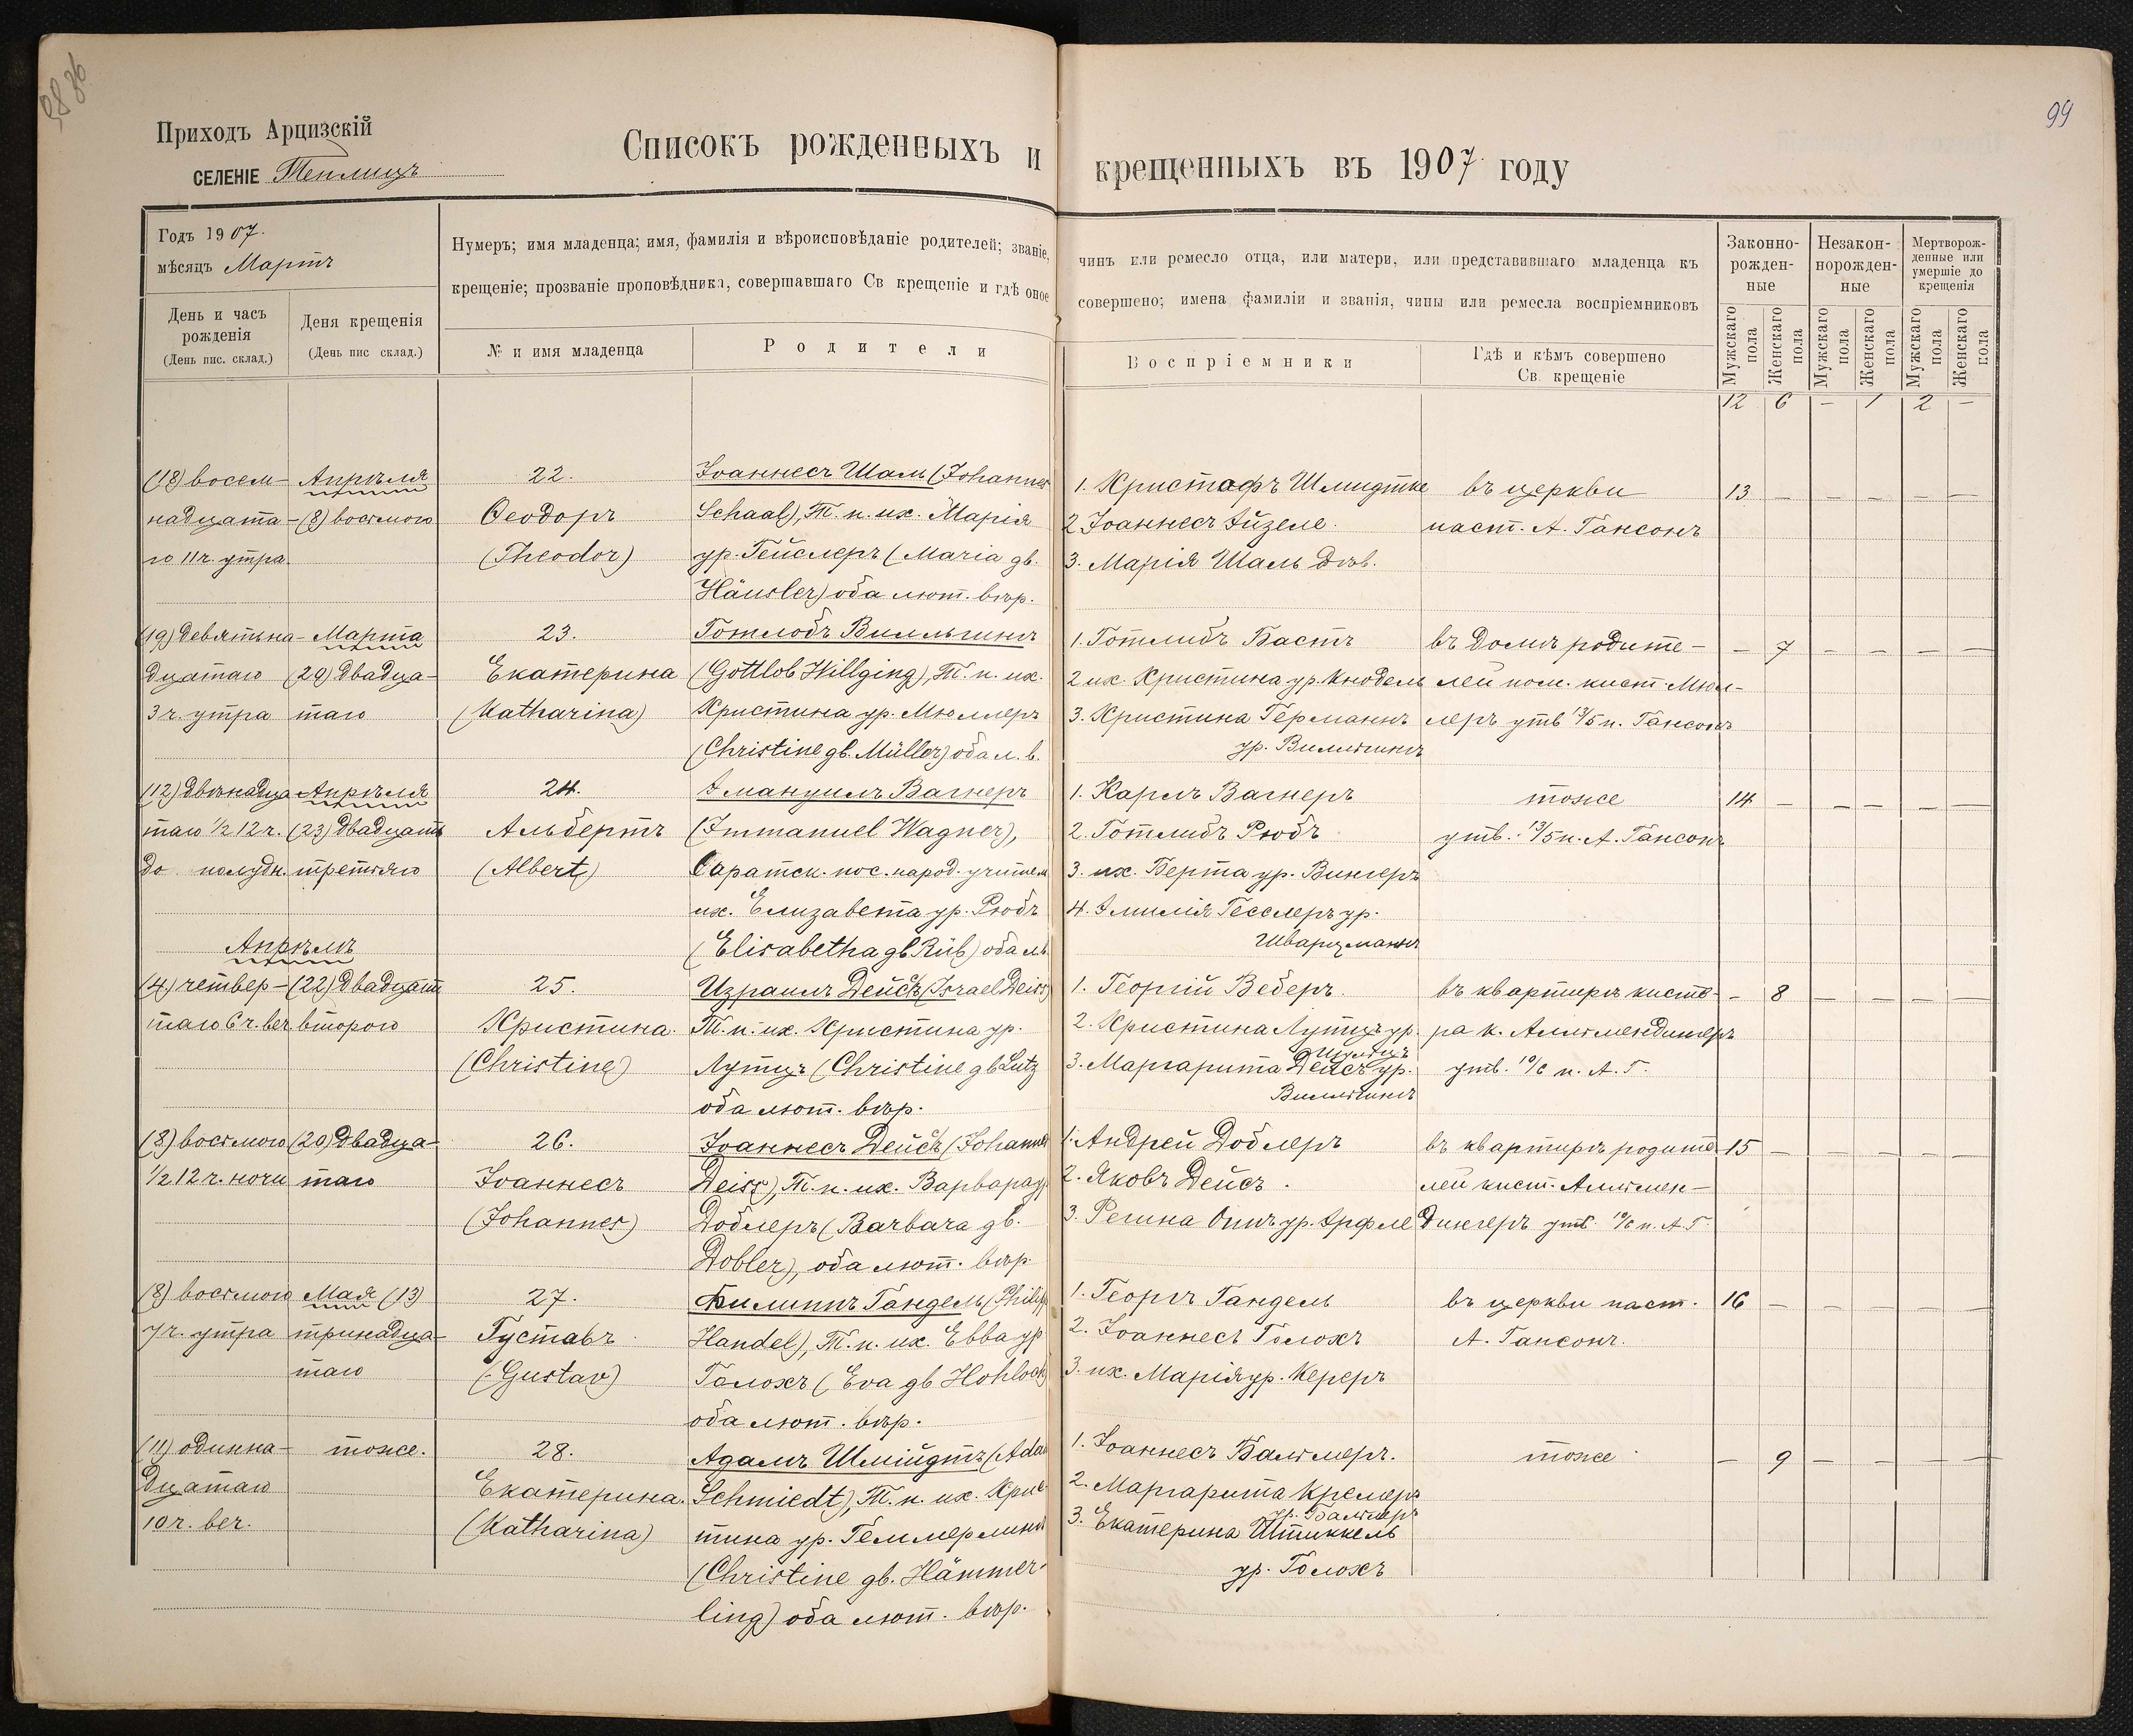 99
Приходъ Арцизскій
СЕЛЕНІЕ Теплицъ
Списокъ рожденныхъ и крещенныхъ въ 1907 году
Годъ 1907.
мѣсяцъ Мартъ
Нумеръ; имя младенца; имя, фамилія и вѣроисповѣданіе родителей; званіе, чинъ или ремесло отца, или матери, или представившаго младенца къ
крещеніе; прозваніе проповѣдника, совершавшаго Св крещеніе и гдѣ оное совершено; имена фамиліи и званія, чины или ремесла воспріемниковъ
День и часъ
рожденія
(День пис. склад.)
Деня крещенія
(День пис склад.)
№ и имя младенца
Родители
Воспріемники
Гдѣ и кѣмъ совершено
Св. крещеніе
Законно-
рожден-
ные
Незакон-
норожден-
ные
Мертворож-
денные или
умершіе до
крещенія
Мужскаго пола
Женскаго пола
Мужскаго пола
Женскаго пола
Мужскаго пола
Женскаго пола
12 6 — 1 2 —
(18) восем-
надцата-
го 11 ч. утра
Апрѣля
(8) восьмого
22.
Ѳеодоръ
(Theodor)
Іоаннесъ Шаль (Johannes
Schaal), Т. п. их. Марія
ур. Гейслеръ (Maria gb.
Häusler) оба лют. вѣр.
1. Христофъ Шмидтке
2 Іоаннесъ Эйзеле.
3. Марія Шаль дѣв.
въ церкви
паст. А. Гансонъ
13 — — — — —
(19) девятьна-
дцатаго
3 ч. утра
Марта
(29) двадца-
таго
23.
Екатерина
(Katharina)
Готлобъ Вильгингъ
(Gottlob Willging), Т. п. их.
Христина ур. Мюллеръ
(Christine gb. Müller) оба л. в.
1. Готлибъ Бастъ
2 их. Христина ур. Кнодель
3. Христина Германнъ
ур. Вильгингъ
въ домѣ родите-
лей пом. кист. Мюл-
леръ утв 13/5 п. Гансонъ
— 7 — — — —
(12) двѣнадца
таго 1/2 12 ч.
до полудн.
Апрѣля
(23) двадцать
третьяго
24.
Альбертъ
(Albert)
Эмануилъ Вагнеръ
(Immanuel Wagner),
Саратск. пос. народ. учитель
их. Елизавета ур. Рюбъ
(Elisabetha gb Rüb) оба л.в.
1. Карлъ Вагнеръ
2. Готлибъ Рюбъ
3. их. Берта ур. Вингеръ
4. Эмилія Гесслеръ ур.
Шварцманнъ
тоже
утв. 13/5 п. А. Гансонъ
14 — — — — —
Апрѣль
(4) четвер-
таго 6 ч. веч
(22) двадцать
второго
25.
Христина.
(Christine)
Израилъ Дейсъ (Israel Deiss)
Т. п. их. Христина ур.
Лутцъ (Christine gb Lutz
оба лют. вѣр.
1. Георгій Веберъ
2. Христина Лутцъ ур.
Шульцъ
3. Маргарита Дейсъ ур.
Вильгингъ
въ квартирѣ кисте-
ра к. Альмендингеръ
утв. 10/6 п. А. Г.
— 8 — — — —
(8) восьмого
1/2 12 ч. ночи
(20) двадца-
таго
26.
Іоаннесъ
(Johannes)
Іоаннесъ Дейсъ (Johannes
Deiss), Т. п. их. Варвара ур.
Доблеръ (Barbara gb.
Dobler), оба лют. вѣр
1. Андрей Доблеръ
2. Яковъ Дейсъ.
3. Регина Оппъ ур. Эрфле
въ квартирѣ родите-
лей кист. Альмен-
дингеръ утв. 10/6 п. А. Г.
15 — — — — —
(8) восьмого
7 ч. утра
Мая (13)
тринадца-
таго
27.
Густавъ
(Gustav)
Филиппъ Гандель (Philipp
Handel), Т. п. их. Евва ур.
Голохъ (Eva gb Hohloch)
оба лют. вѣр.
1. Георгъ Гандель
2. Іоаннесъ Голохъ
3. их. Марія ур. Кереръ
въ церкви паст.
А. Гансонъ.
16 — — — — —
(11) одинна-
дцатаго
10 ч. веч.
тоже.
28.
Екатерина.
(Katharina)
Адамъ Шмидтъ (Adam
Schmiedt), Т. п. их. Хрис-
тина ур. Геммерлингъ
(Christine gb. Hämmer-
ling) оба лют. вѣр.
1. Іоаннесъ Бальмеръ.
2. Маргарита Кремеръ
ур. Бальмеръ
3. Екатерина Штиккель
ур. Голохъ
тоже
— 9 — — — —